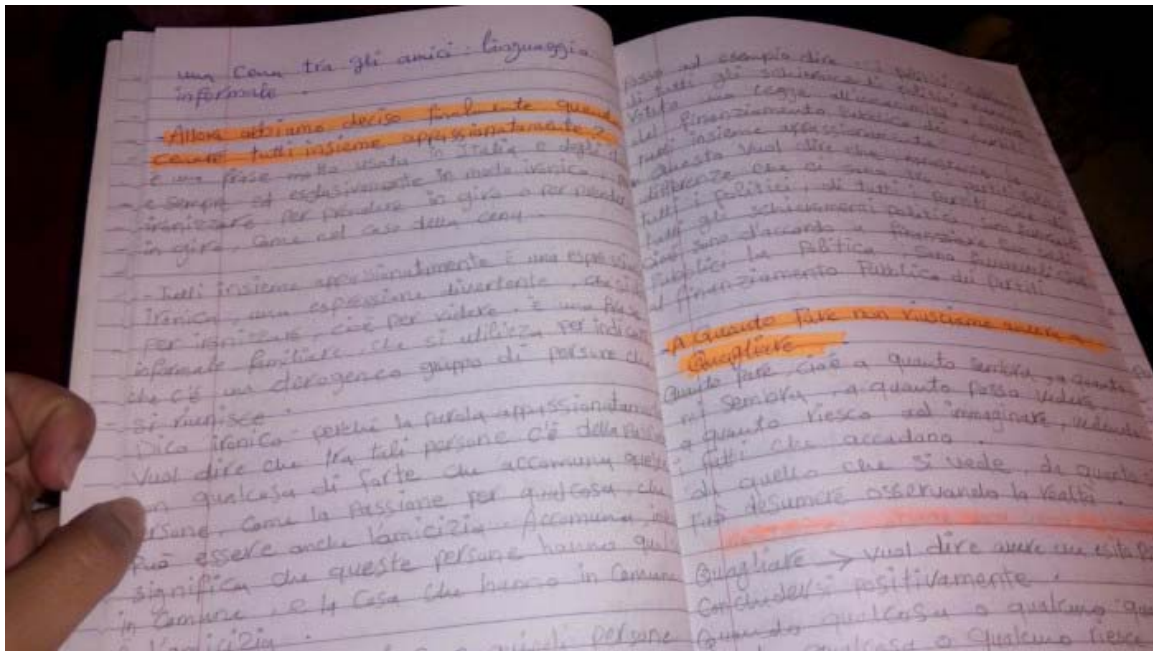 una cena tra gli amici : linguaggio
informale .
- Allora abbiamo deciso finalmente quando
cenare tutti insieme appassionatamente ?
è una frase molto usata in Italia e degli
e sempre ed esclusivamente in modo ironico, per
ironizzare per prendere in giro o per prender
in giro, come nel caso della cena .
- Tutti insieme appassionatamente È una espressione
Ironica, una espressione divertente, che si
per ironizzare cioè per ridere . è una frase
informale familiare, che si utilizza per indicare
che c'è un eterogeneo gruppo di persone che
si riunisce .
Dico ironica perché la parola appassionatamente
Vuol dire che tra tali persone c'è della passione
un qualcosa di forte che accomuna queste
persone, come la passione per qualcosa, che
Può essere anche l'amicizia. Accomuna,
significa che queste persone hanno qualcosa
in comune, e la cosa che hanno in comune
è l'amicizia .
quindi persone
Posso ad esempio dire : i politici
di tutti gli schieramenti politici hanno
votato una legge all'unanimità a favore
del finanziamento pubblico dei partiti
tutti insieme appassionatamente .
Questo vuol dire che nonostante le
differenze che ci sono tra
tutti i politici, di tutti i partiti
tutti gli schieramenti politici
sono d'accordo a finanziare
Pubblici la Politica, sono favorevoli
al finanziamento Pubblico dei partiti
- A Quanto Pare non riusciamo ancora a
Quagliare .
Quanto Pare, cioè a quanto sembra, a quanto
mi sembra, a quanto posso vedere
a quanto riesco ad immaginare, vedendo
i fatti che accadono .
da quello che si vede, da quanto si
Può desumere osservando la realtà .
Quagliare → vuol dire avere un esito
Concludersi positivamente .
Quando qualcosa o qualcuno
qualcosa o qualcuno riesce